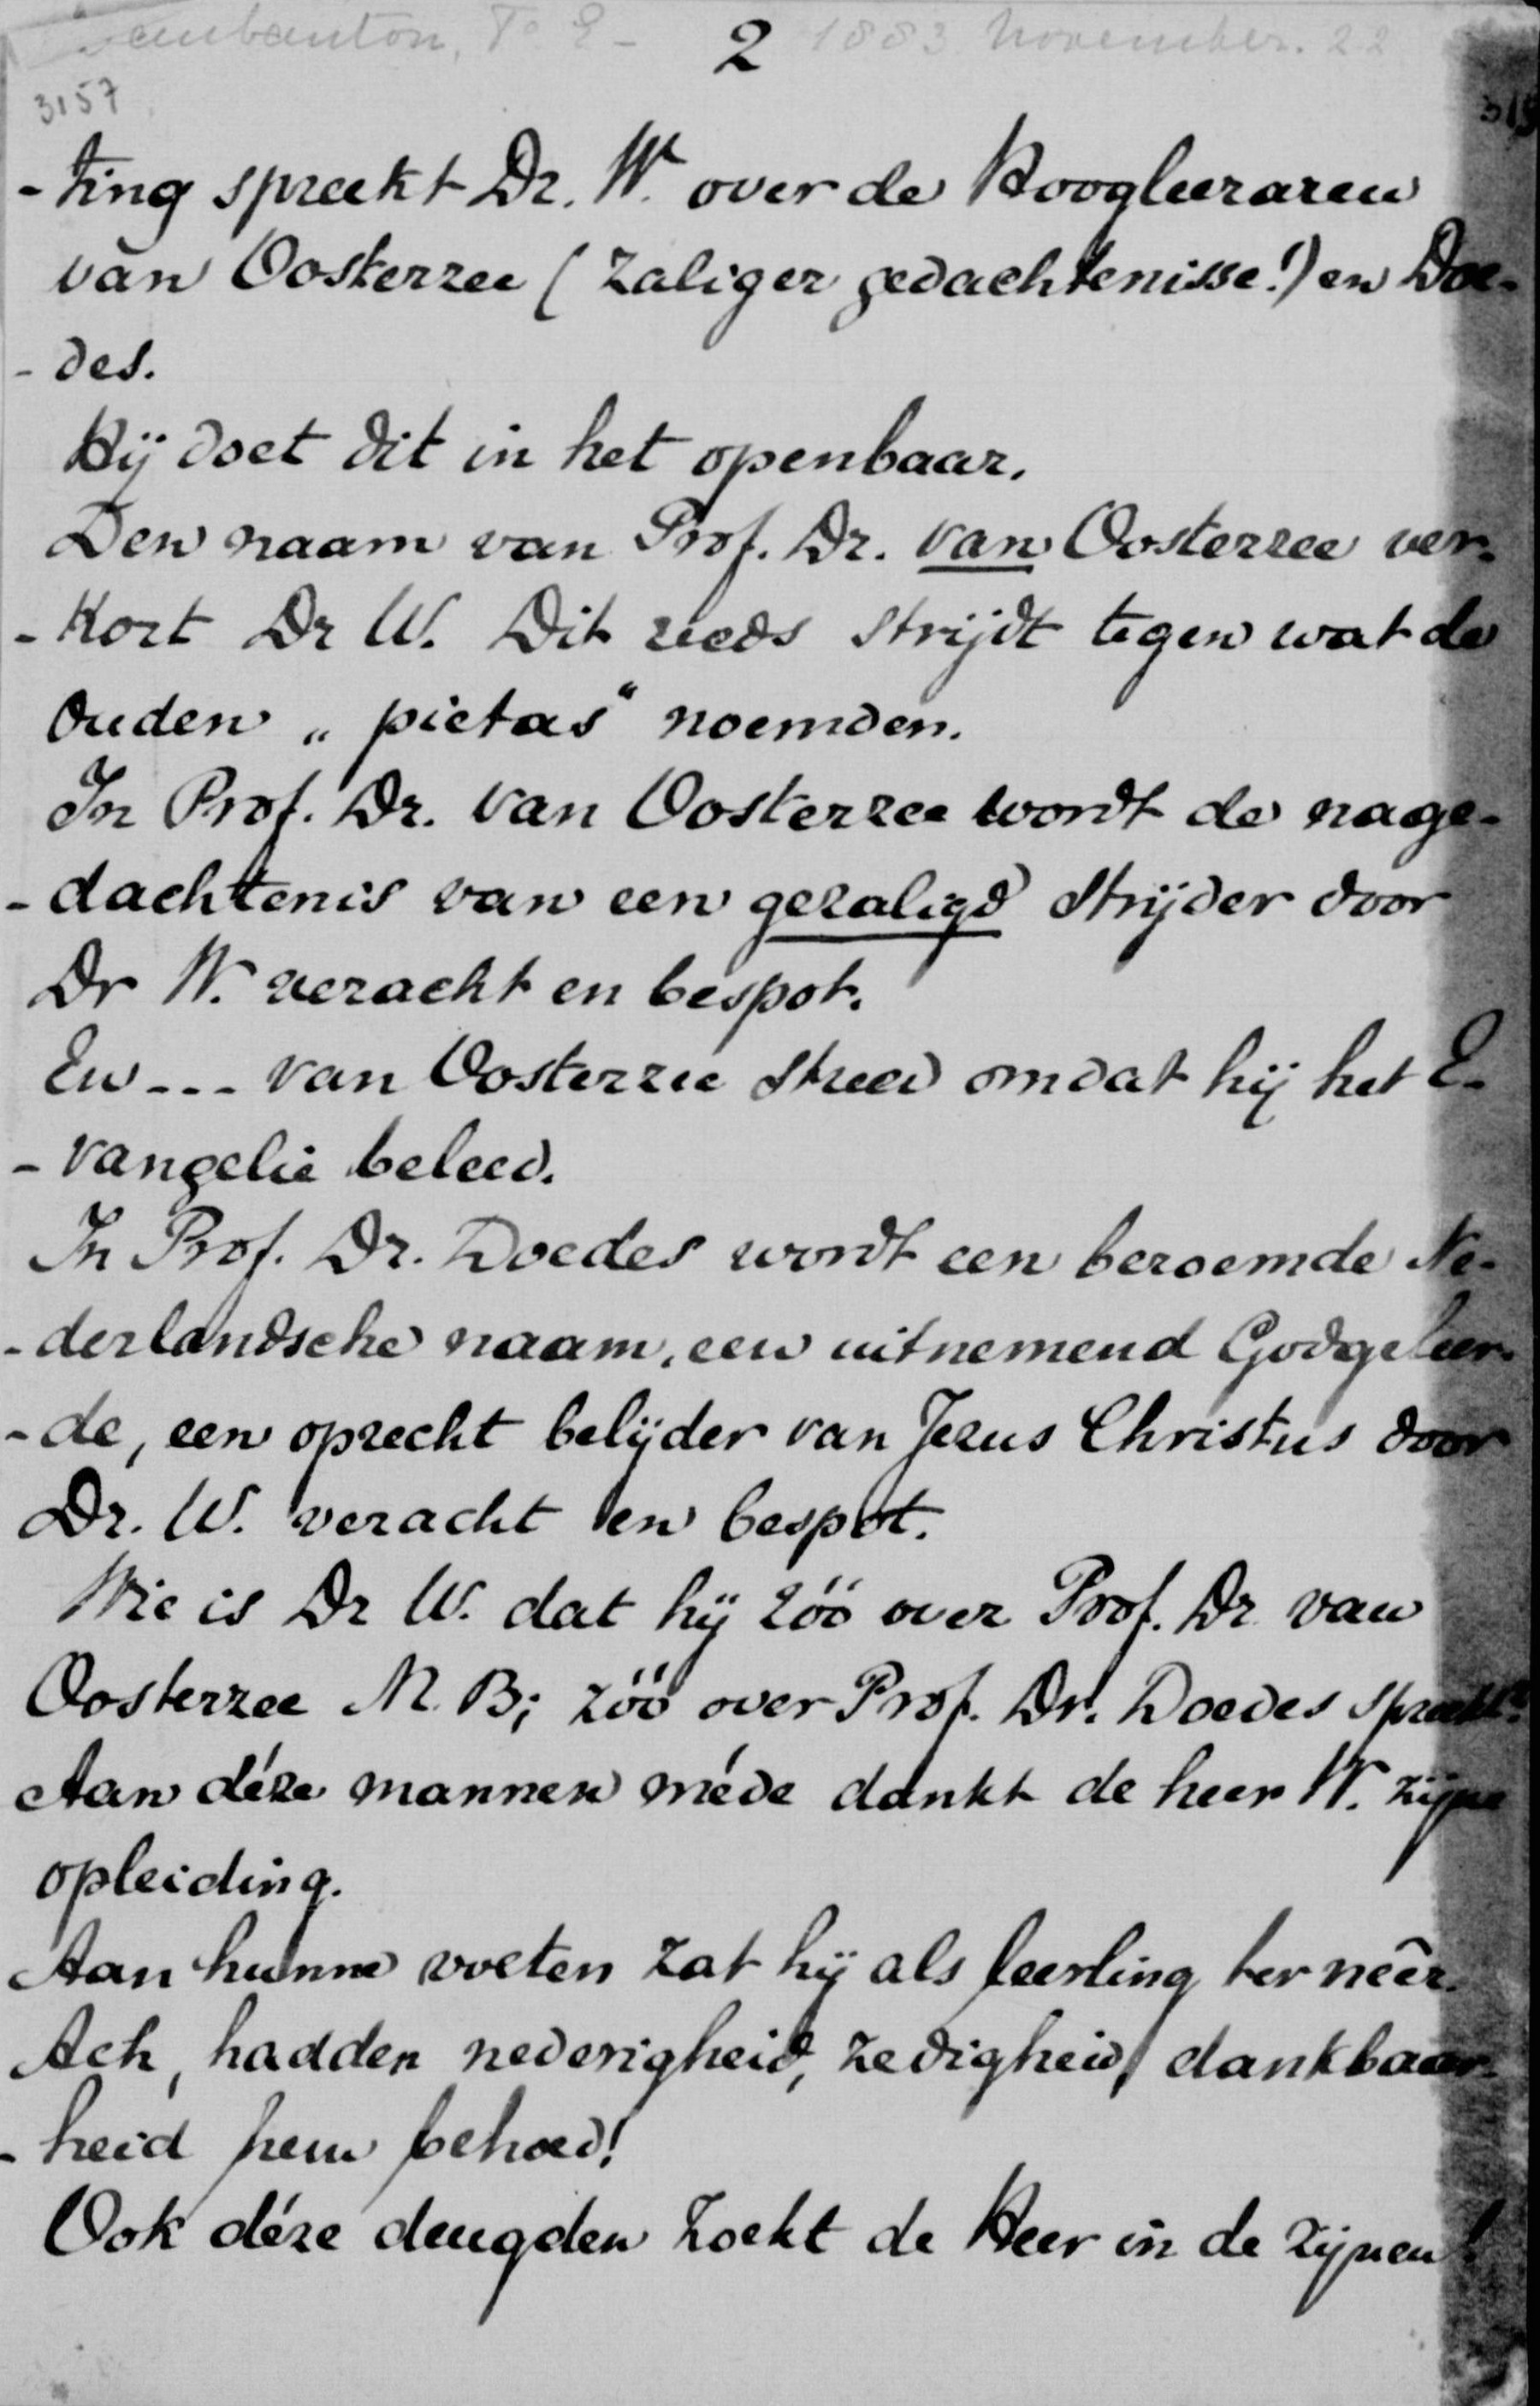 2 1883 November. 22
3157
-ting spreekt Dr. W. over de Hoogleeraren
van Oosterzee (zaliger gedachtenisse!) en Doe-
-des.
Hij doet dit in het openbaar.
Den naam van Prof. Dr. van Oosterzee ver-
-kort Dr W. Dit reeds strijdt tegen wat de
Ouden „pietas“ noemden.
In Prof. Dr. van Oosterzee wordt de nage-
-dachtenis van een gezaligd strijder door
Dr W. veracht en bespot.
En --- van Oosterzee streed omdat hij het E-
-vangelie beleed.
In Prof. Dr. Doedes wordt een beroemde Ne-
-derlandsche naam, een uitnemend Godgeleer-
-de, een oprecht belijder van Jezus Christus door
Dr. W. veracht en bespot.
Wie is Dr W. dat hij zóó over Prof. Dr. van
Oosterzee N.B; zóó over Prof. Dr. Doedes spreekt?
Aan déze mannen méde dankt de heer W. zijne
opleiding.
Aan hunne voeten zat hij als leerling ter neêr.
Ach, hadden nederigheid, zedigheid, dankbaar-
-heid hem behoed!
Ook déze deugden zoekt de Heer in de zijnen!